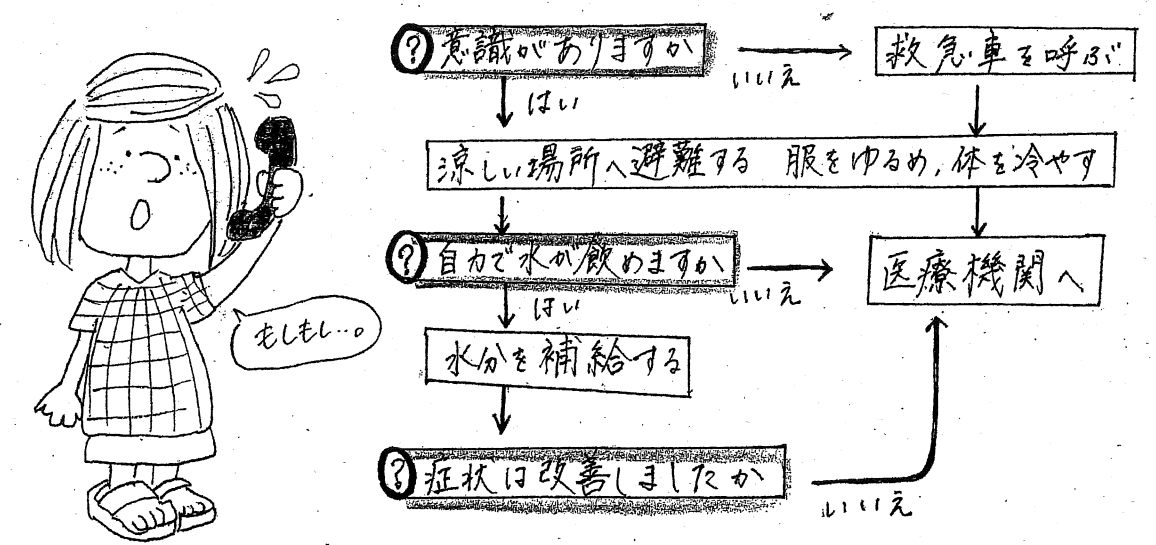 ? 意識がありますか
いいえ
救急車を呼ぶ
はい
涼しい場所へ避難する 服をゆるめ、体を冷やす
? 自力で水が飲めますか
いいえ
医療機関へ
はい
もしもし…。
水分を補給する
? 症状は改善しましたか
いいえ